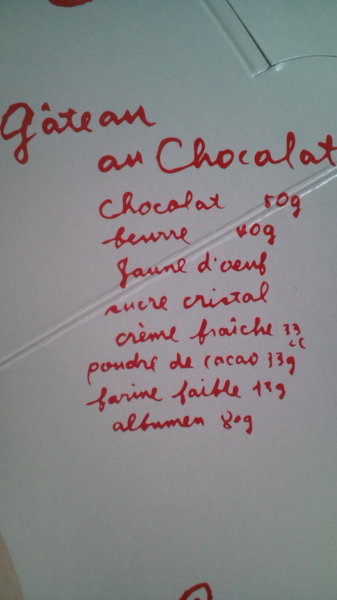 Gâteau
au Chocolat
Chocolat 50g
beurre 40g
Jaune d'oeuf
sucre cristal
crème fraîche 33 cc
poudre de cacao 33g
farine faible 13g
albumen 80g